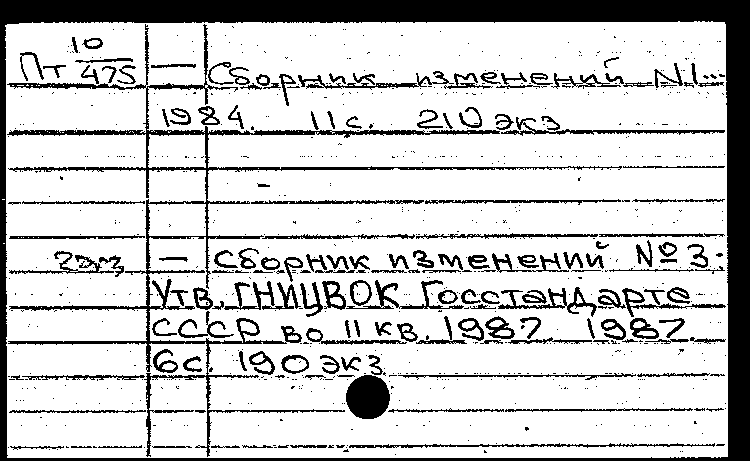 Пт 10/475 — Сборник изменений N1...
1984. 11 с. 210 экз
2экз — Сборник изменений №3:
Утв. ГНИЦВОК Госстандарта
СССР во II кв. 1987. 1987.
6с. 190 экз